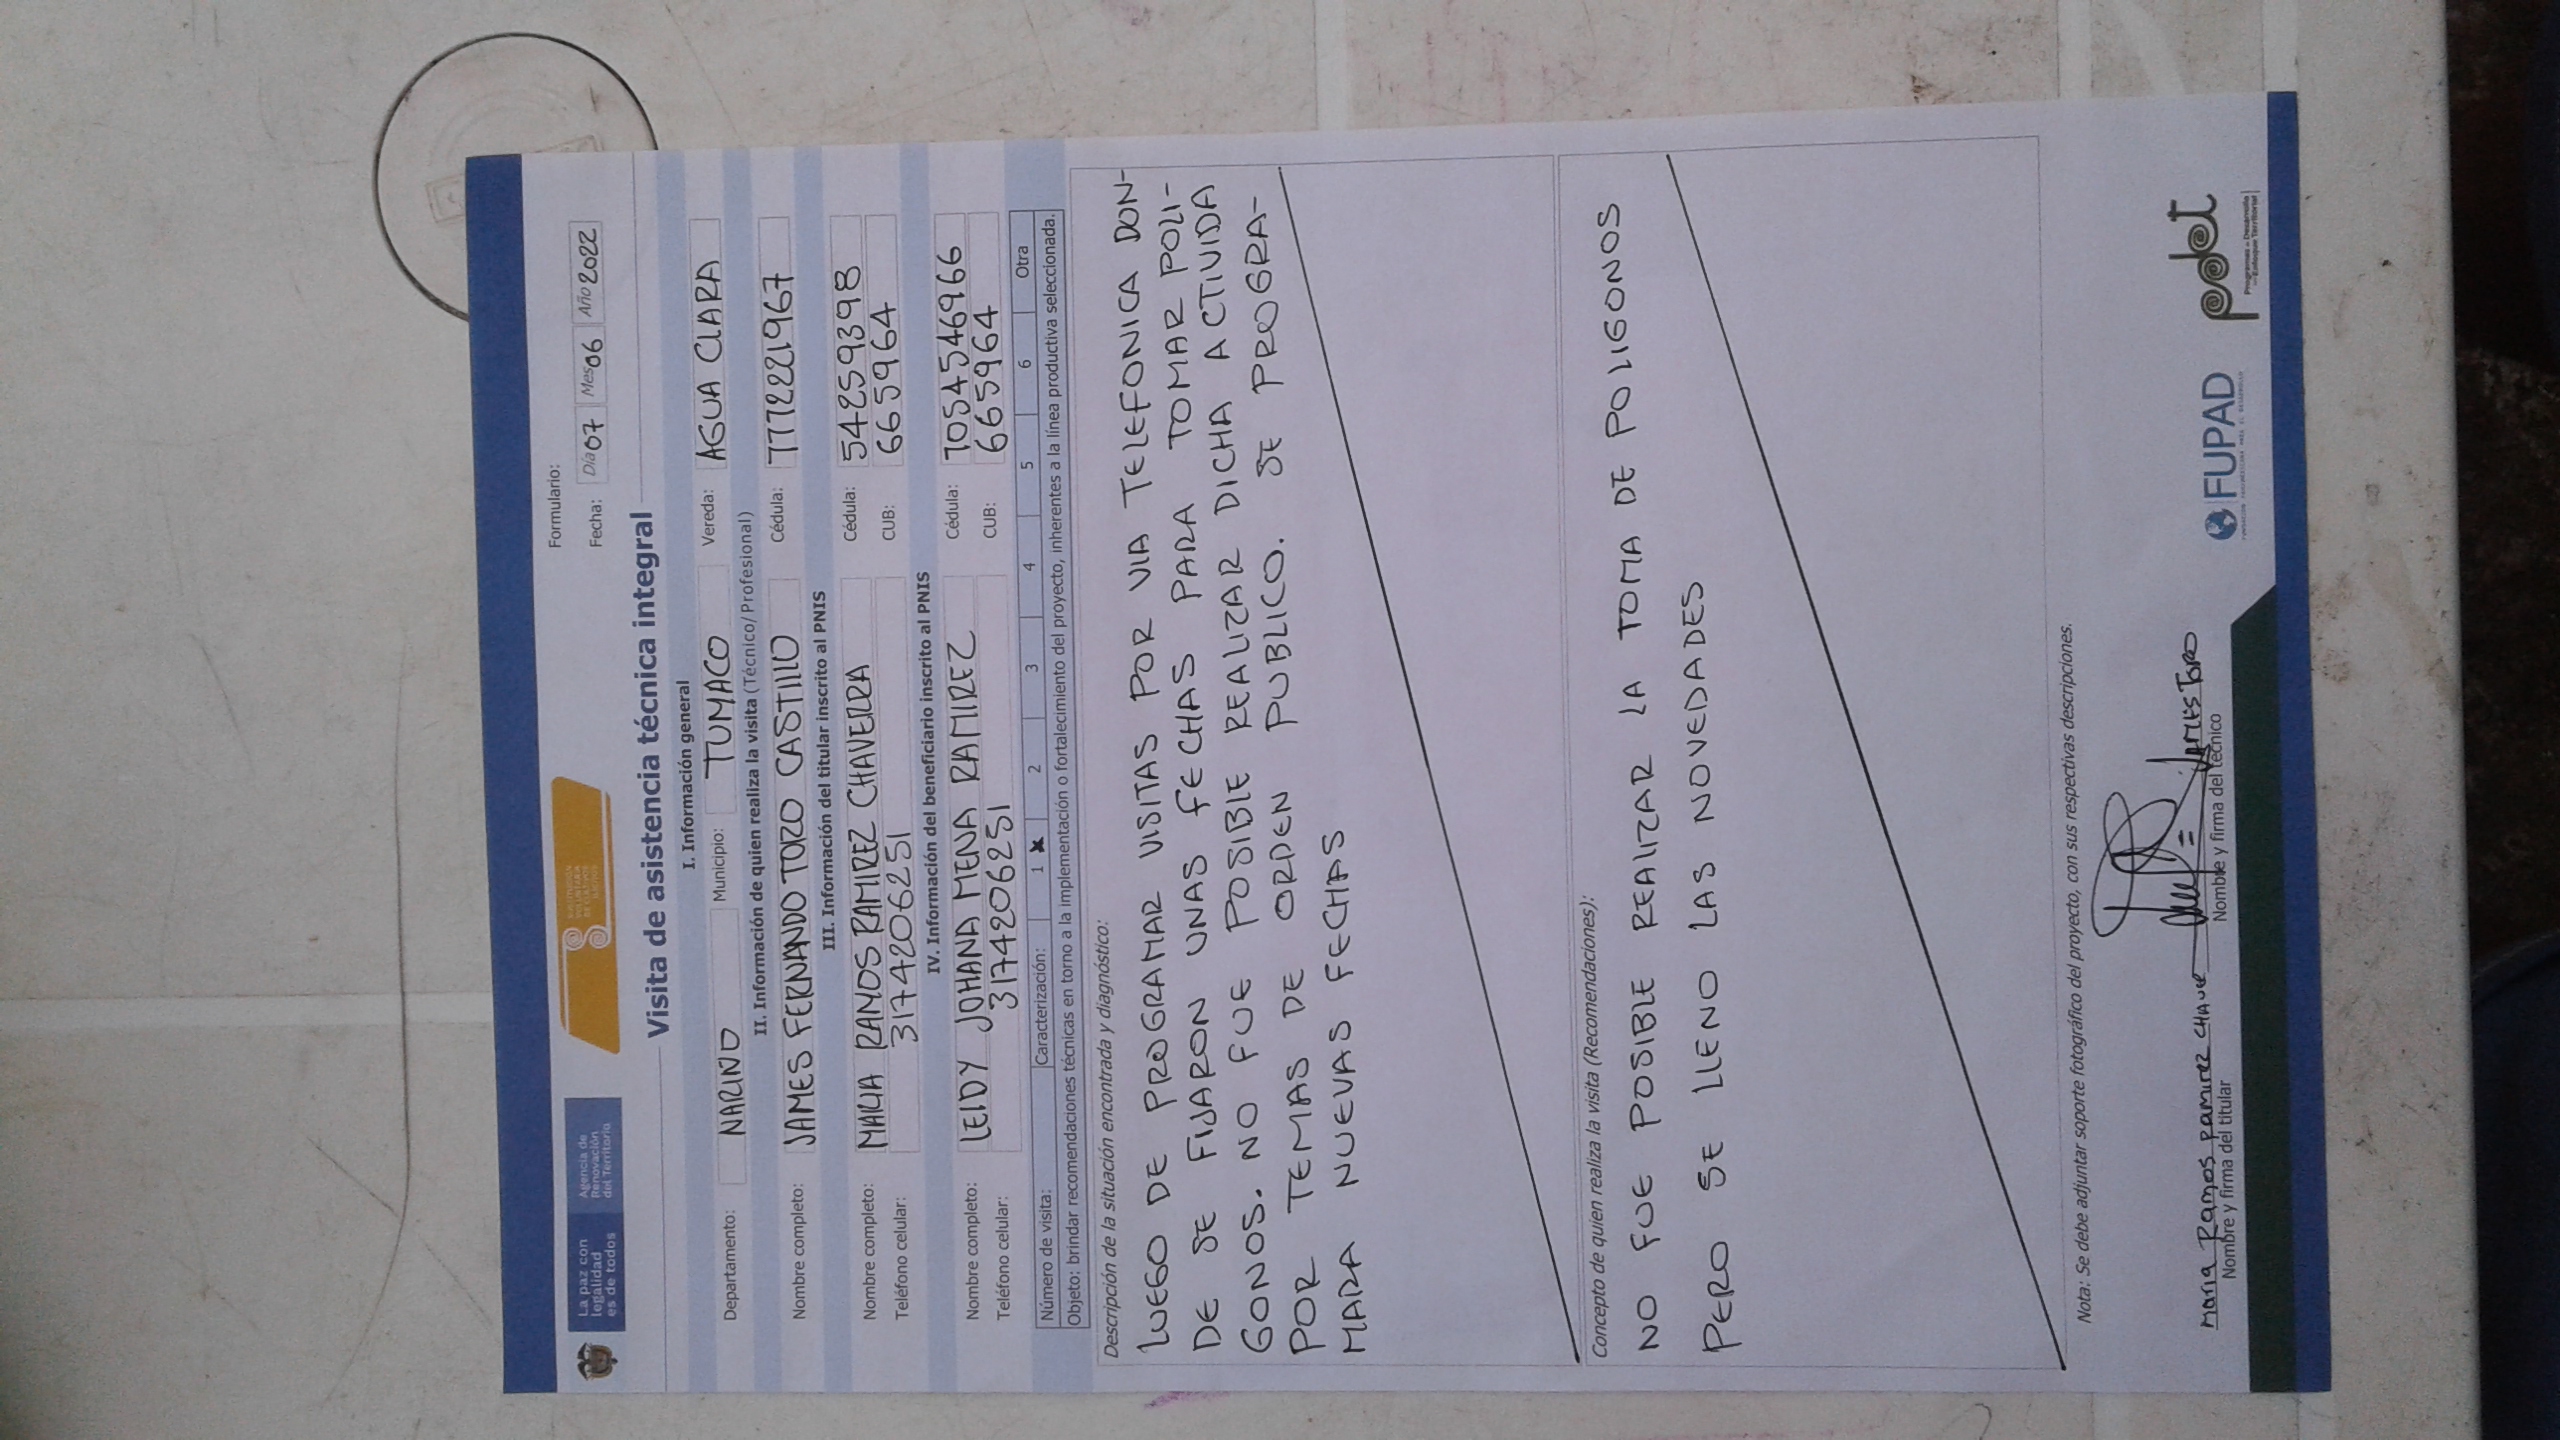 La paz con
legalidad
es de todos
Agencia de
Renovación
del Territorio
SUSTITUCIÓN
VOLUNTARIA
DE CULTIVOS
ILÍCITOS
Formulario:
Fecha: Día 07 Mes 06 Año 2022
Visita de asistencia técnica integral
I. Información general
Departamento: NARINO Municipio: TUMACO Vereda: AGUA CLARA
II. Información de quien realiza la visita (Técnico/Profesional)
Nombre completo: JAMES FERNANDO TORO CASTILLO Cédula: 7772221967
III. Información del titular inscrito al PNIS
Nombre completo: MARIA RAMOS RAMIREZ CHAVERRA Cédula: 54259398
Teléfono celular: 3174206251 CUB: 6659964
IV. Información del beneficiario inscrito al PNIS
Nombre completo: LEIDY JOHANA MENA RAMIREZ Cédula: 1054546966
Teléfono celular: 3174206251 CUB: 6659964
Número de visita: Caracterización: 1 X 2 3 4 5 6 Otra
Objeto: brindar recomendaciones técnicas en torno a la implementación o fortalecimiento del proyecto, inherentes a la línea productiva seleccionada.
Descripción de la situación encontrada y diagnóstico:
LUEGO DE PROGRAMAR VISITAS POR VIA TELEFONICA DON-
DE SE FIJARON UNAS FECHAS PARA TOMAR POLI-
GONOS. NO FUE POSIBLE REALIZAR DICHA ACTIVIDA
POR TEMAS DE ORDEN PUBLICO. SE PROGRA-
MARA NUEVAS FECHAS
Concepto de quien realiza la visita (Recomendaciones):
NO FUE POSIBLE REALIZAR LA TOMA DE POLIGONOS
PERO SE LLENO LAS NOVEDADES
Nota: Se debe adjuntar soporte fotográfico del proyecto, con sus respectivas descripciones.
Maria Ramos Ramirez CHAVE JAMES TORO
Nombre y firma del titular Nombre y firma del técnico
FUPAD
pdet
Programas de Desarrollo
con Enfoque Territorial